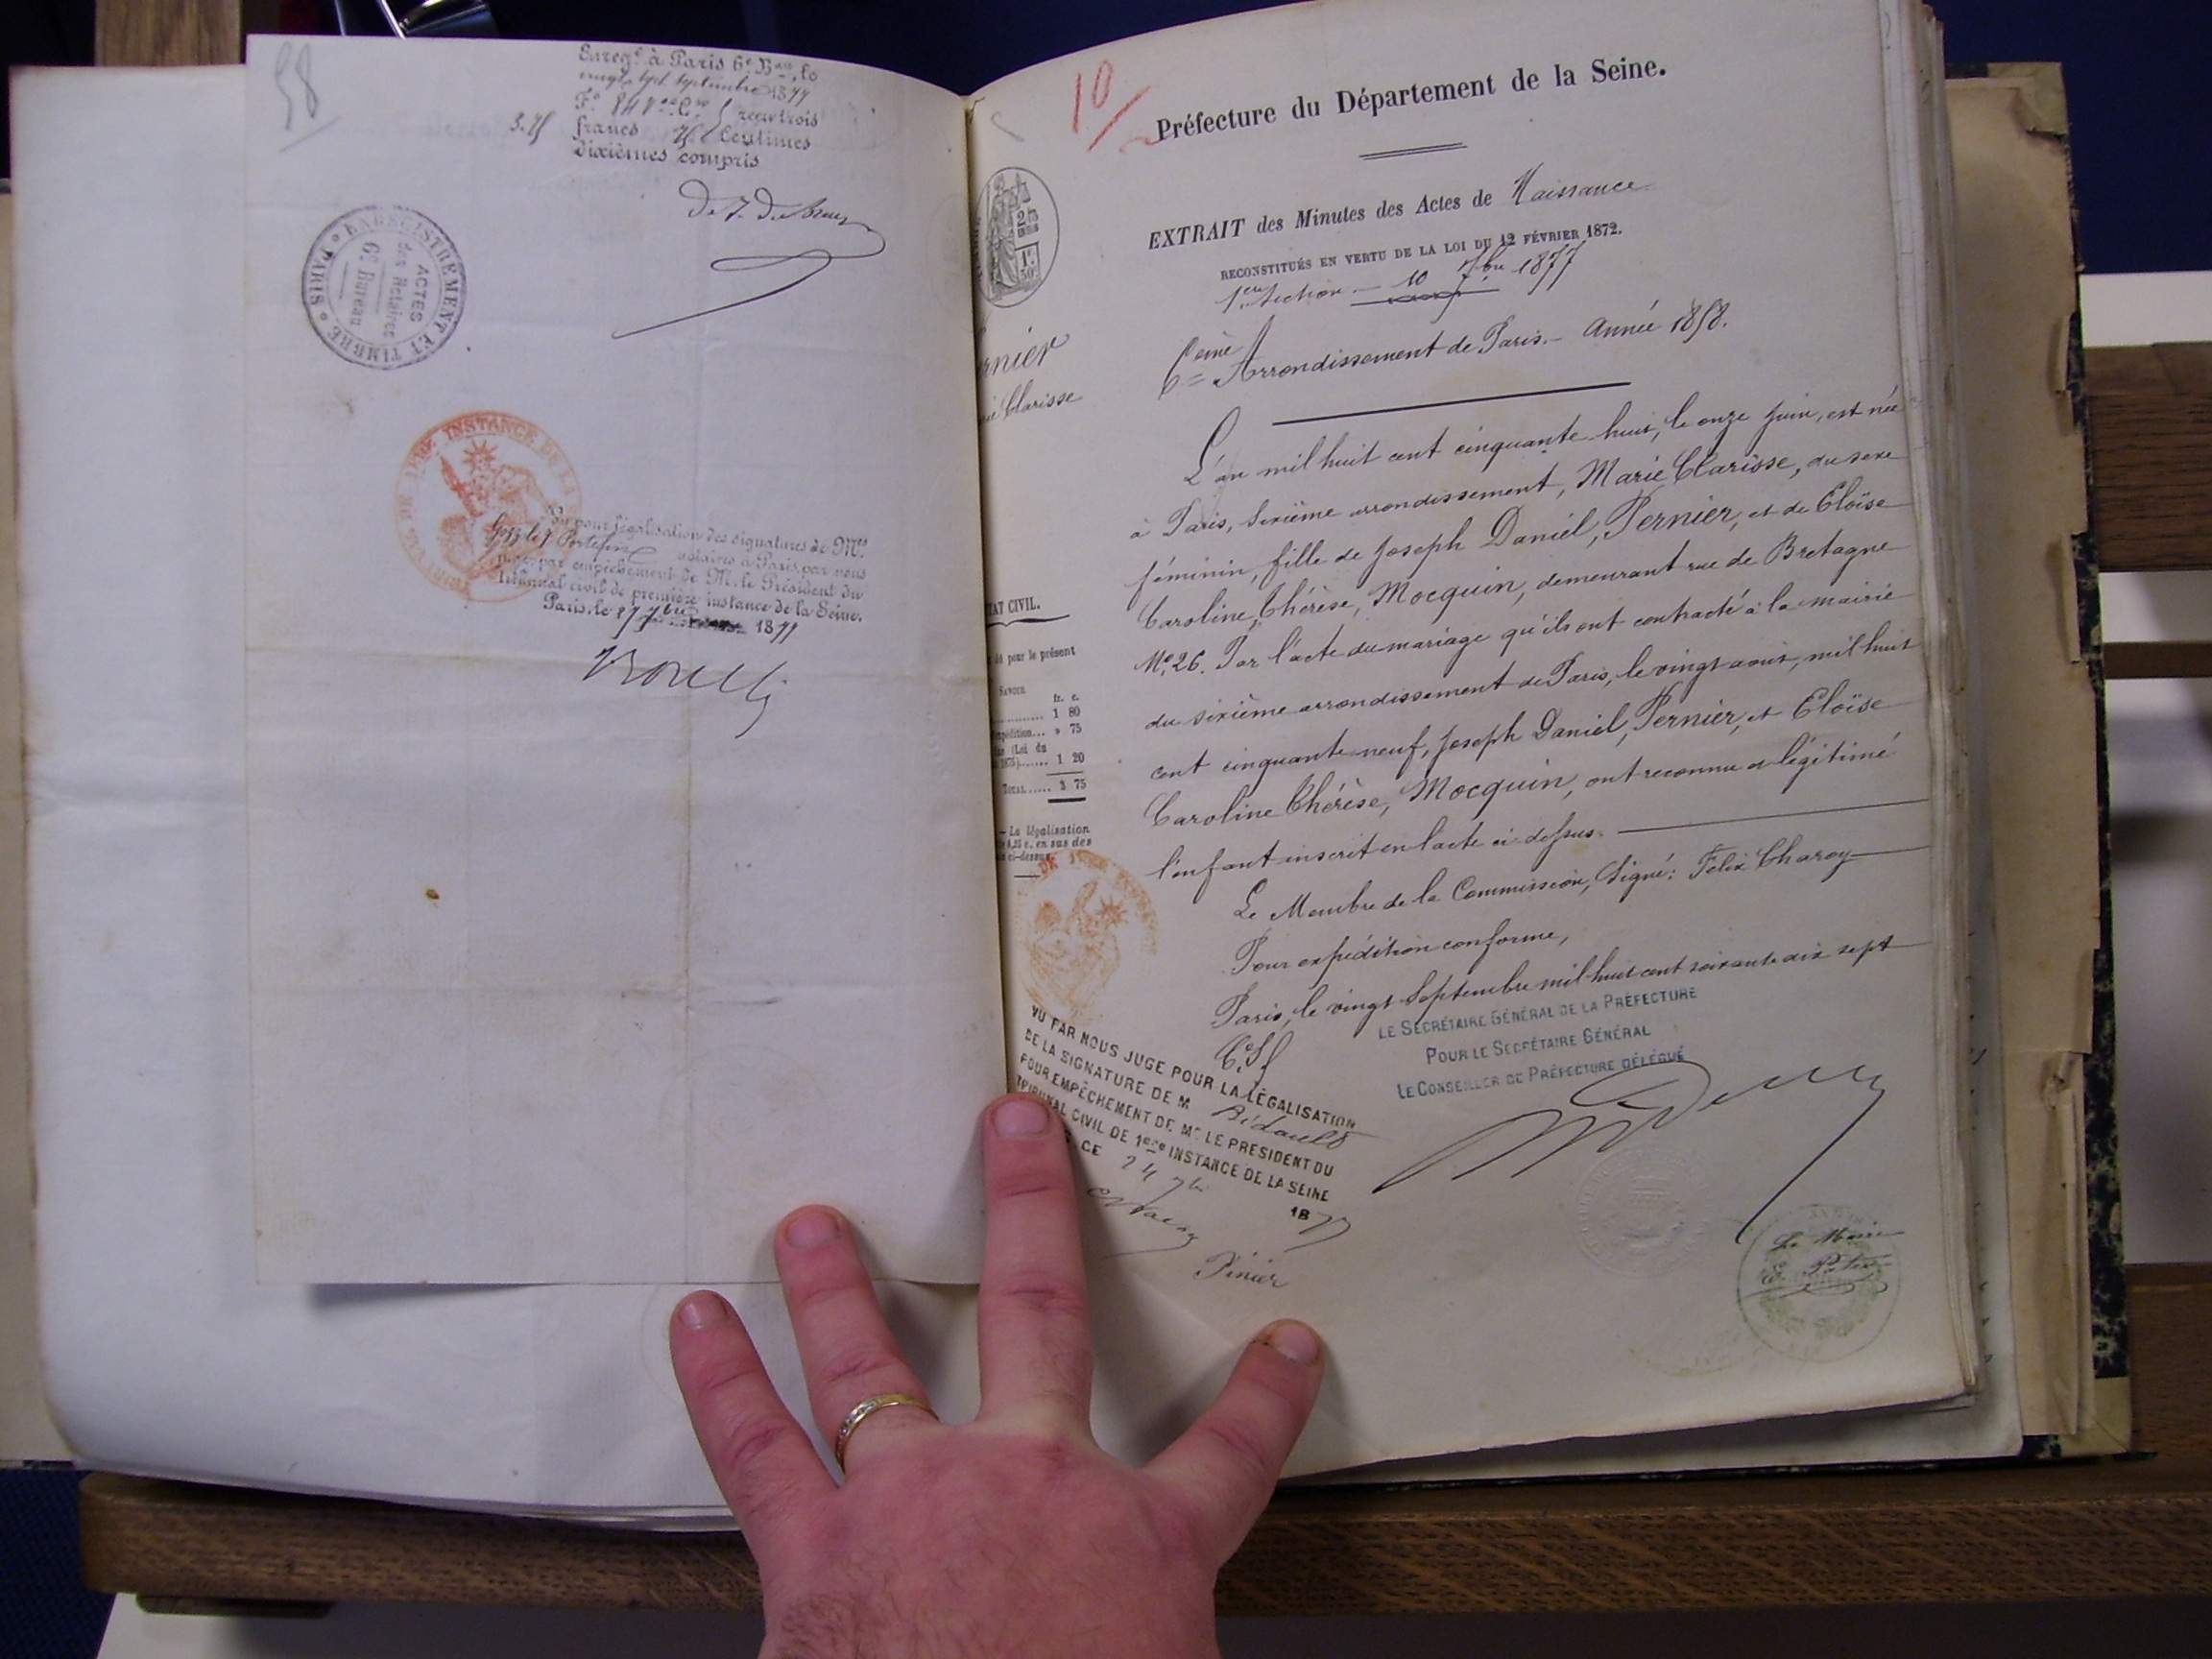 58
Enregé à Paris 6e Bau, le
vingt sept septembre 1877
Fo 84 Vo Ce reçu trois
3.75 francs 75 Centimes
Dixièmes compris
ENREGISTREMENT ET TIMBRE * PARIS *
ACTES
des Notaires
6e Bureau
Vu pour légalisation des signatures de Mes
notaires à Paris, par nous
juge, par empêchement de M. le Président du
tribunal civil de première instance de la Seine.
Paris, le 27 7bre 1877
10
Préfecture du Département de la Seine.
EXTRAIT des Minutes des Actes de Naissance
RECONSTITUÉS EN VERTU DE LA LOI DU 12 FÉVRIER 1872.
1ère Section — 10 7bre 1877
6ème Arrondissement de Paris. — Année 1858.
L'an mil huit cent cinquante huit, le onze juin, est née
à Paris, sixième arrondissement, Marie Clarisse, du sexe
féminin, fille de Joseph Daniel, Pernier, et de Eloïse
Caroline, Thérèse, Mocquin, demeurant rue de Bretagne
No. 26. Par l'acte du mariage qu'ils ont contracté à la mairie
du sixième arrondissement de Paris, le vingt aout, mil huit
cent cinquante neuf, Joseph Daniel, Pernier, et Eloïse
Caroline Thérèse, Mocquin, ont reconnu et légitimé
l'enfant inscrit en l'acte ci-dessus.
Le Membre de la Commission, Signé: Félix Charoy
Pour expédition conforme,
Paris, le vingt Septembre mil huit cent soixante dix sept
LE SECRÉTAIRE GÉNÉRAL DE LA PRÉFECTURE
POUR LE SECRÉTAIRE GÉNÉRAL
LE CONSEILLER DE PRÉFECTURE DÉLÉGUÉ
rnier
ie Clarisse
TAT CIVIL.
dû pour le présent
SAVOIR
fr. c.
1 80
xpédition... » 75
(Loi du
1875)...... 1 20
TOTAL..... 3 75
— La légalisation
c. en sus des
ci-dessus
VU PAR NOUS JUGE POUR LA LÉGALISATION
DE LA SIGNATURE DE M Bidault
POUR EMPÊCHEMENT DE Mr LE PRESIDENT DU
TRIBUNAL CIVIL DE 1ere INSTANCE DE LA SEINE
CE 24 7bre 1877
Pinier
Le Maire